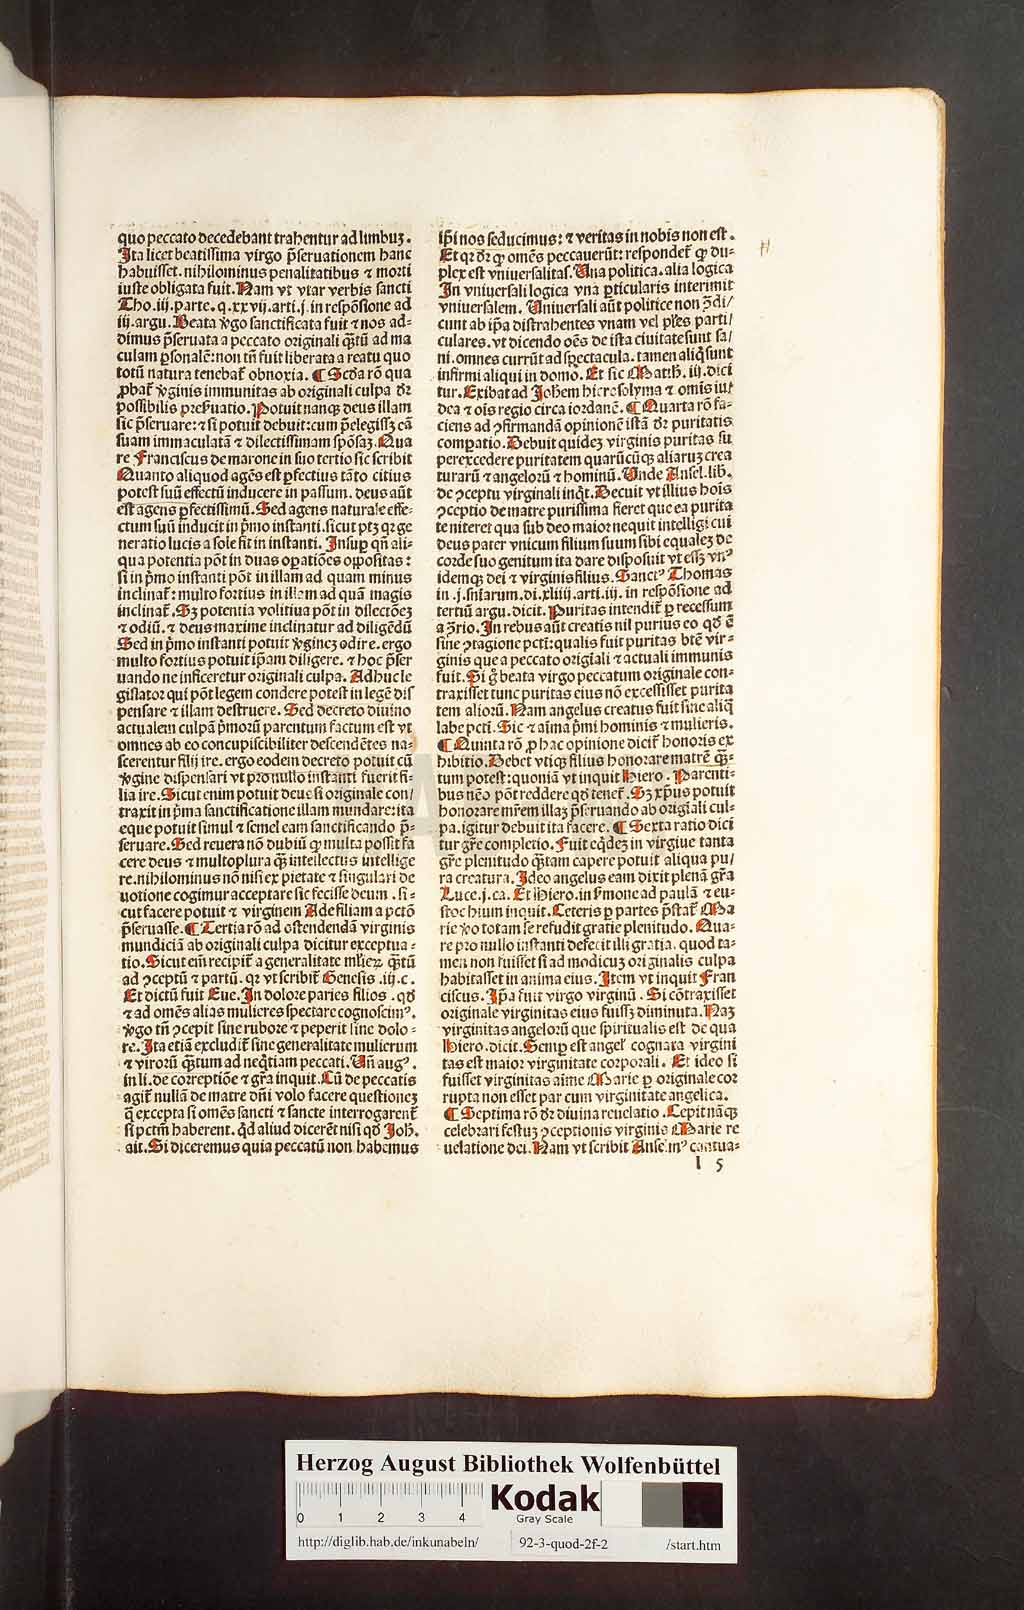 quo peccato decedebant trahentur ad limbuʒ.
Ita licet beatissima virgo p̄seruationem hanc
habuisset. nihilominus penalitatibus ⁊ morti
iuste obligata fuit. Nam vt vtar verbis sancti
Tho. iij. parte. q. xxvij. arti. j. in respōsione ad
iij. argu. Beata v̓go sanctificata fuit ⁊ nos ad-
dimus p̄seruata a peccato originali q̄tū ad ma
culam ꝑsonalē: non tn̄ fuit liberata a reatu quo
totū natura tenebat̄ obnoxia. ¶ Scd̓a rō qua
ꝓbat̄ v̓ginis immunitas ab originali culpa dr̄
possibilis preẜuatio. Potuit nanqꝫ deus illam
sic p̄seruare: ⁊ si potuit debuit: cum p̄elegissꝫ eā
suam immaculatā ⁊ dilectissimam spōsaʒ. Qua
re Franciscus de marone in suo tertio sic scribit
Quanto aliquod agēs est ꝑfectius tāto citius
potest suū effectū inducere in passum. deus aūt
est agens ꝑfectissimū. Sed agens naturale effe-
ctum suū inducit in p̓mo instanti. sicut ptꝫ qꝛ ge
neratio lucis a sole fit in instanti. Insuꝑ qn̄ ali-
qua potentia pōt in duas oꝑatiōes oppositas:
si in p̓mo instanti pōt in illam ad quam minus
inclinat̄: multo fortius in illam ad quā magis
inclinat̄. Sꝫ potentia volitiua pōt in dilectōeʒ
⁊ odiū. ⁊ deus maxime inclinatur ad diligēdū
Sed in p̓mo instanti potuit v̓gineʒ odire. ergo
multo fortius potuit ip̄am diligere. ⁊ hoc p̄ser
uando ne inficeretur originali culpa. Adhuc le
gislator qui pōt legem condere potest in legē dis
pensare ⁊ illam destruere. Sed decreto diuino
actualem culpā p̓morū parentum factum est vt
omnes ab eo concupiscibiliter descendētes na-
scerentur filij ire. ergo eodem decreto potuit cū
v̓gine dispensari vt pro nullo instanti fuerit fi-
lia ire. Sicut enim potuit deus si originale con/
traxit in p̓ma sanctificatione illam mundare: ita
eque potuit simul ⁊ semel eam sanctificando p̄-
seruare. Sed reuera nō dubiū ꝙ multa possit fa
cere deus ⁊ multoplura qꝫ̄ intellectus intellige
re. nihilominus nō nisi ex pietate ⁊ singulari de
uotione cogimur acceptare sic fecisse deum. si-
cut facere potuit ⁊ virginem Ade filiam a pctō
p̄seruasse. ¶ Tertia rō ad ostendendā virginis
mundiciā ab originali culpa dicitur exceptua-
tio. Sicut em̄ recipit̄ a generalitate mlieꝝ q̄tū
ad ꝯceptū ⁊ partū. qꝛ vt scribit̄ Genesis. iij. c.
Et dictū fuit Eue. In dolore paries filios. qd̓
⁊ ad omēs alias mulieres spectare cognoscimꝰ.
v̓go tn̄ ꝯcepit sine rubore ⁊ peperit sine dolo-
re. Ita etiā excludit̄ sine generalitate mulierum
⁊ virorū q̄tum ad neq̄tiam peccati. Vn̄ augꝰ.
in li. de correptiōe ⁊ gr̄a inquit. Cū de peccatis
agit̄ nullā de matre dn̄i volo facere questioneʒ
q̄ excepta si omēs sancti ⁊ sancte interrogarent̄
si pctm̄ haberent. qd̓ aliud dicerēt nisi qd̓ Joh̄.
ait. Si diceremus quia peccatū non habemus
ip̄i nos seducimus: ⁊ veritas in nobis non est.
Et qꝛ dr̄ ꝙ omēs peccauerūt: respondet̄ ꝙ du-
plex est vniuersalitas. Una politica. alia logica
In vniuersali logica vna ꝑticularis interimit
vniuersalem. Uniuersali aūt politice non ꝯ̄di/
cunt ab ip̄a distrahentes vnam vel pl̄es parti/
culares. vt dicendo oēs de ista ciuitate sunt sa/
ni. omnes currūt ad spectacula. tamen aliq̄ sunt
infirmi aliqui in domo. Et sic Matth. iij. dici
tur. Exibat ad Joh̄em hierosolyma ⁊ omis iu-
dea ⁊ ois regio circa iordanē. ¶ Quarta rō fa-
ciens ad ꝯfirmandā opinionē istā dr̄ puritatis
comꝑatio. Debuit quideʒ virginis puritas su
perexcedere puritatem quarūcūqꝫ aliarū crea
turarū ⁊ angelorū ⁊ hominū. Unde Ansel. lib.
de ꝯceptu virginali inq̄t. Decuit vt illius hoīs
ꝯceptio de matre purissima fieret que ea purita
te niteret qua sub deo maior nequit intelligi cui
deus pater vnicum filium suum sibi equaleʒ de
corde suo genitum ita dare disposuit vt essꝫ vnꝰ
idemqꝫ dei ⁊ virginis filius. Sanctꝰ Thomas
in. j. sn̄iarum. di. xliiij. arti. iij. in respōsione ad
tertiū argu. dicit. Puritas intendit̄ ꝑ recessum
a ꝯ̄rio. In rebus aūt creatis nil purius eo qd̓ ē
sine ꝯtagione pcti: qualis fuit puritas btē vir-
ginis que a peccato origiāli ⁊ actuali immunis
fuit. Si g̊ beata virgo peccatum originale con-
traxisset tunc puritas eius nō excessisset purita
tem aliorū. Nam angelus creatus fuit sine aliq̄
labe pcti. Sic ⁊ aīma p̓mi hominis ⁊ mulieris.
¶ Quinta rō ꝓ hac opinione dicit̄ honoris ex
hibitio. Debet vtiqꝫ filius honorare matrē qꝫ̄-
tum potest: quoniā vt inquit Hiero. Parenti-
bus nēo pōt reddere qd̓ tenet̄. Sꝫ xp̄us potuit
honorare mr̄em illaʒ p̄seruando ab origiāli cul-
pa. igitur debuit ita facere. ¶ Sexta ratio dici
tur gr̄e completio. Fuit eq̄deʒ in virgine tanta
gr̄e plenitudo q̄tam capere potuit aliqua pu/
ra creatura. Ideo angelus eam dixit plenā gr̄a
Luce. j. ca. Et Hiero. in ẜmone ad paulā ⁊ eu-
stochium inquit. Ceteris ꝑ partes p̄stat̄ Ma
rie v̓o totam se refudit gratie plenitudo. Qua-
re pro nullo instanti defecit illi gratia. quod ta-
men non fuisset si ad modicuʒ originalis culpa
habitasset in anima eius. Item vt inquit Fran
ciscus. Ip̄a fuit virgo virginū. Si cōtraxisset
originale virginitas eius fuissꝫ diminuta. Naʒ
virginitas angelorū que spiritualis est de qua
Hiero. dicit. Semꝑ est angel̓ cognata virgini
tas est maior virginitate corporali. Et ideo si
fuisset virginitas aīme Marie ꝑ originale cor
rupta non esset par cum virginitate angelica.
¶ Septima rō dr̄ diuina reuelatio. Cepit nāqꝫ
celebrari festuʒ ꝯceptionis virginis Marie re
uelatione dei. Nam vt scribit Anselmꝰ cantua-
l 5
Herzog August Bibliothek Wolfenbüttel
0 1 2 3 4
Kodak
Gray Scale
http://diglib.hab.de/inkunabeln/ 92-3-quod-2f-2 /start.htm